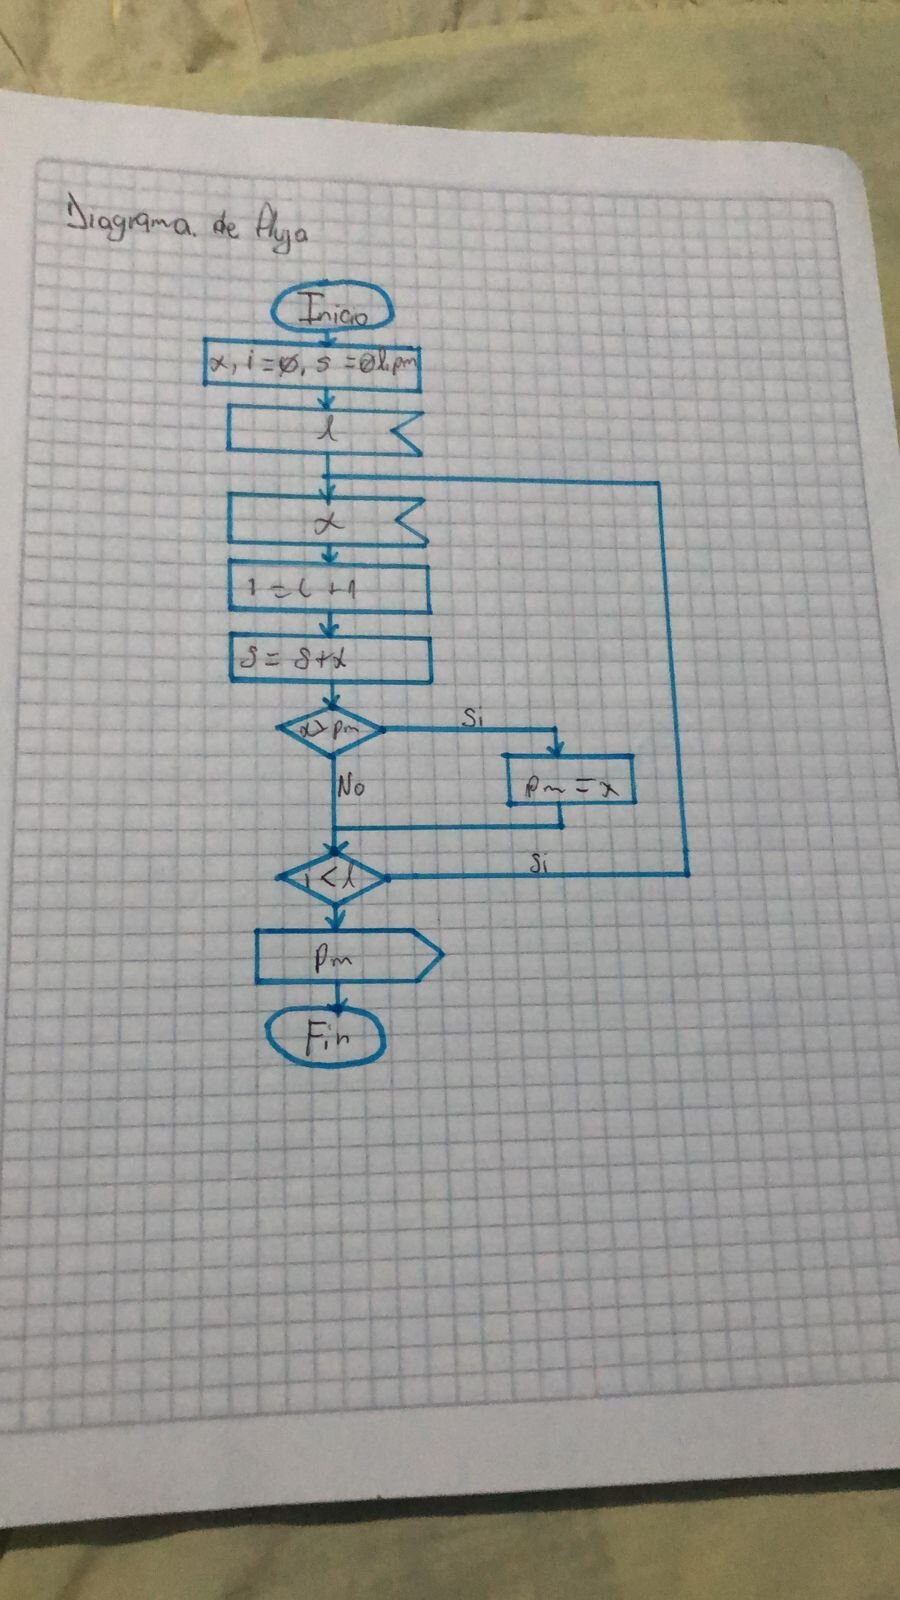 Diagrama. de flujo
Inicio
x, i = 0, s = 0 l, pm
l
x
i = i + 1
s = s + x
x > pm
Si
No
pm = x
i < l
Si
pm
Fin